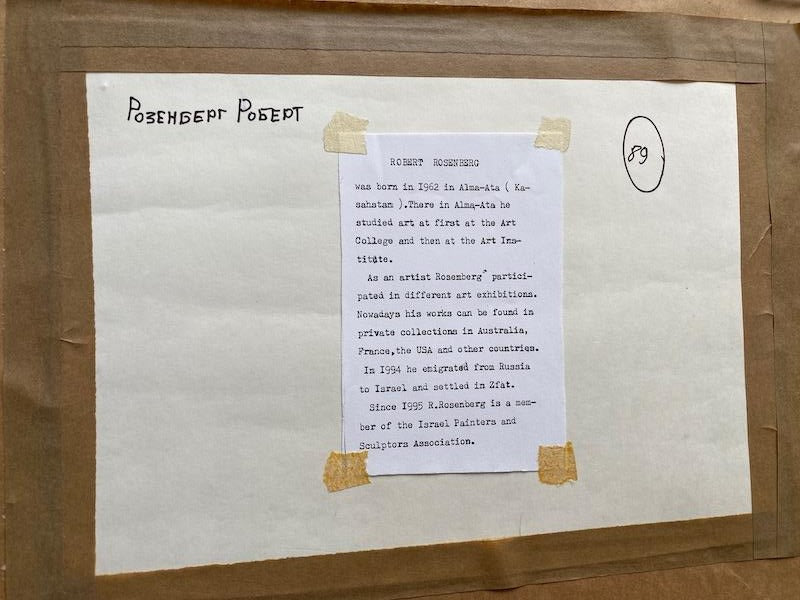 Розенберг Роберт
89
ROBERT ROSENBERG
was born in I962 in Alma-Ata ( Ka-
sahstan ).There in Alma-Ata he
studied art at first at the Art
College and then at the Art Ins-
titute.
As an artist Rosenberg partici-
pated in different art exhibitions.
Nowadays his works can be found in
private collections in Australia,
France,the USA and other countries.
In I994 he emigrated from Russia
to Israel and settled in Zfat.
Since I995 R.Rosenberg is a mem-
ber of the Israel Painters and
Sculptors Association.